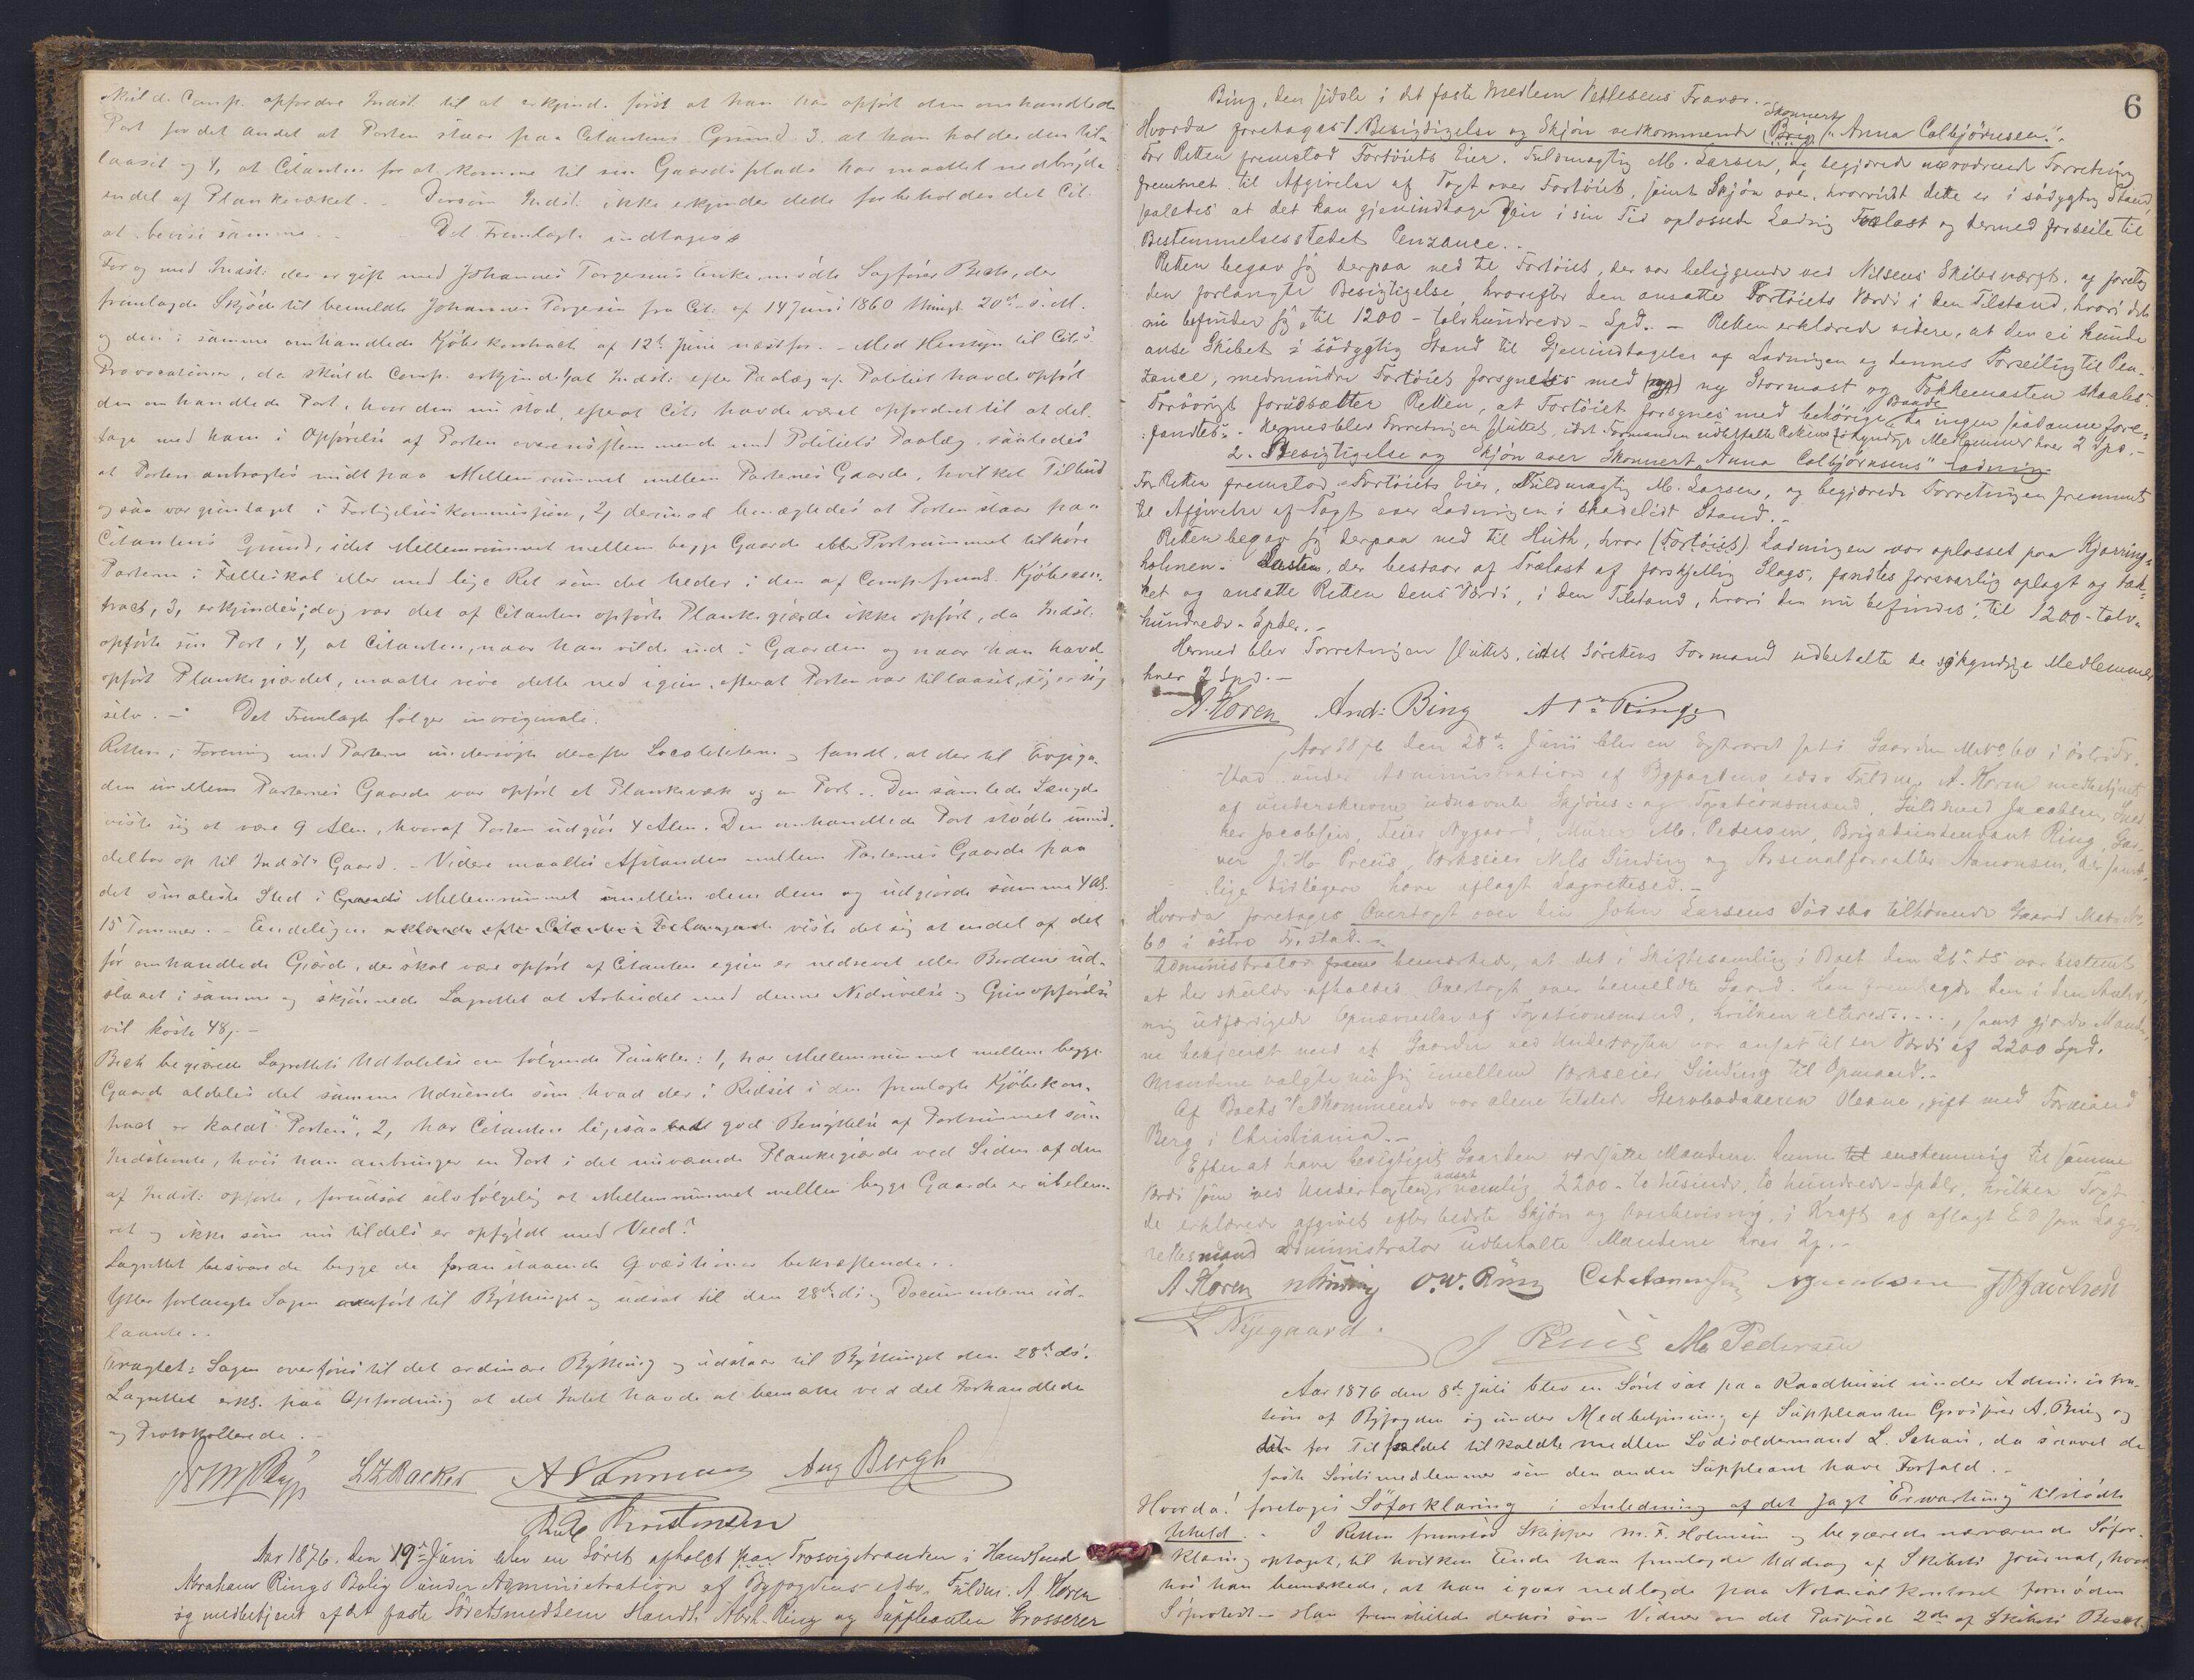 Skuld. Comp. opfordre Indst. til at erkjend. först at han har opfört den omhandlede
Port for det andet at Porten staar paa Citantens Grund 3. at han holder den til-
laaset og 4, at Citanten for at komme til sin Gaardsplads har maattet nedbryde
endel af Plankeværket. – Dersom Indst. ikke erkjender dette forbeholdes det Cit.
at bevise samme. – Det Fremlagte indtages
For og med Indst: der er gift med Johannes Torgersens Enke, mödte Sagförer Bech, der
fremlagde Skjöde til bemeldte Johannes Torgersen fra Cit. af 14 Juni 1860 thingl. 20de s. M.
og den i samme omhandlede Kjöbekontract af 12te Juni næstfor. – Med Hensyn til Cits
Provocationer, da skulde Comp. erkjende 1, at Indst: efter Paalæg af Politiet havde opfört
den omhandlede Port, hvor den nu stod, efterat Cit. havde været opfordret til at del-
tage med ham i Opförelse af Porten overensstemmende med Politiets Paalæg saaledes
at Porten anbragtes midt paa Mellemrummet mellem Parternes Gaarde, hvilket Tilbud
ogsaa var gjentaget i Forligelseskommissionen, 2, derimod benægtedes at Porten staar paa
Citantens Grund, idet Mellemrummet mellem begge Gaarde eller Portrummet tilhöre
Parterne i Fælleskab eller med lige Ret som det heder i den af Comp. freml. Kjöbecon-
tract, 3, erkjendes; dog var det af Citanten opförte Plankegjærde ikke opfört, da Indst.
opförte sin Port, 4, at Citanten, naar han vilde ind i Gaarden og naar han havde
opfört Plankegjærdet, maatte rive dette ned igjen, efterat Porten var tillaaset, siger sig
selv. – Det Fremlagte fölger in originali.
Retten i Forening med Parterne undersögte derefter Localiteterne og fandt, at der til
den imellem Parternes Gaarde var opfört et Plankeværk og en Port. Den samlede Længde
viste sig at være 9 Alen, hvoraf Porten udgjör 4 Alen. Den omhandlede Port stödte umid-
delbar op til Indst's Gaard. – Videre maaltes Afstanden mellem Parternes Gaarde paa
det smaleste Sted i Mellemrummet imellem dem og udgjorde samme 4 Al.
15 Tommer. – Endeligen viste det sig at endel af det
för omhandlede Gjærde, der skal være opfört af Citanten egien er nedrevet eller Bordene ud-
slaaet i samme og skjönnede Lagrettet at Arbeidet med denne Nedrivelse og Gjenopförelse
vil koste 48,-
Bech begjærede Lagrettets Udtalelse om fölgende Punkter: 1, har Mellemrummet mellem begge
Gaarde aldeles det samme Udseende som hvad der i Ridset i den fremlagte Kjöbekon-
tract er kaldt "Porten", 2, har Citanten ligesaa god Benyttelse af Portrummet som
Indstævnte, hvis han anbringer en Port i det nuværende Plankegjærde ved Siden af den
af Indst: opförte, forudsat selvfölgelig at Mellemrummet mellem begge Gaarde er
ret og ikke som nu tildels er opfyldt med Veed?
Lagrettet besvarede begge de foranstaaende Qvæstioner bekræftende.
forlangte Sagen overfört til Bythinget og udsat til den 28de ds og Documenterne ud-
laante.
Eragtet: Sagen overföres til det ordinære Bything og udstaar til Bythinget den 28de ds.
Lagrettet erkl. paa Opfordring at det Intet havde at bemærke ved det Forhandlede
og Protokollerede. –
L. H. Backer Aug Bergh
Aar 1876. den 19de Juni blev en Söret afholdt paa Trosvigstranden i Handlende
Abraham Rings Bolig under Administration af Bygfogdens edsv. Fuldm. A. Horen
og medbetjent af det faste Söretsmedlem Handl. Abrh. Ring og Suppleanten Grosserer
6
Bing, den sidste i det faste Medlem Vetlesens Fravær. –
Skonnert
Hvorda foretages 1. Besigtigelse og Skjön vedkommende (Brig) "Anna Colbjörnsen".
For Retten fremstod Fartöiets Eier, Fuldmægtig M. Larsen, og begjærede nærværende Forretning
fremmet til Afgivelse af Taxt over Fartöiet, samt Skjön over, hvorvidt dette er i södygtig Stand,
saaledes at det kan gjenindtage sin i sin Tid oplossede Ladning Trælast og dermed forseile til
Bestemmelsesstedet Penzance. –
Retten begav sig derpaa ned til Fartöiet, der var beliggende ved Nilsens Skibsværft, og foretog
den forlangte Besigtigelse, hvorefter den ansatte Fartöiets Værdi i den Tilstand, hvori det
nu befinder sig, til 1200 – tolvhundrede – Spd. – Retten erklærede videre, at den ei kunde
anse Skibet i södygtig Stand til Gjenindtagelse af Ladningen og dennes Forseiling til Pen-
zance, medmindre Fartöiet forsynes med (ny) ny Stormast og Fokkemasten skaales.
Baade
Forövrigt forudsætter Retten, at Fartöiet forsynes med behörige da ingen saadanne fore-
fandtes. – Hermed blev Forretningen sluttet, idet Formanden udbetalte Rettens sökyndige Medlemmer hver 2 Spd. –
2. Besigtigelse og Skjön over Skonnert "Anna Colbjörnsens" Ladning
For Retten fremstod Fartöiets Eier, Fuldmægtig M. Larsen, og begjærede Forretningen fremmet
til Afgivelse af Taxt over Ladningen i skadelidt Stand. –
Retten begav sig derpaa ned til Huth, hvor (Fartöiet) Ladningen var oplosset paa Kjærring-
holmen. Lasten, der bestaar af Trælast af forskjellig Slags, fandtes forsvarlig oplagt og tæk-
ket og ansatte Retten dens Værdi, i den Tilstand, hvori den nu befindes, til 1200 – tolv-
hundrede – Spdlr. –
Hermed blev Forretningen sluttet, idet Sörettens Formand udbetalte de sökyndige Medlemmer
hver 2 Spd. –
A. Horen And: Bing
Aar 1876 den 28de Juni blev en Extraret sat i Gaarden Matr No 60 i östre Fr.
stad under Administration af Byfogdens edsv. Fuldm. A. Horen medbetjent
af underskrevne udnævnte Skjöns- og Taxationsmænd, Guldsmed Jacobsen, Sned-
ker Jacobsen, Feier Nygaard, Murer M. Pedersen, Brigadeintendant Ring, Gar-
ver J. H. Preus, Værkseier Nils Sinding og Arsenalforvalter Aanonsen, der samt-
lige tidligere have aflagt Lagrettesed. –
Hvorda foretages Overtaxt over den John Larsens Dödsbo tilhörende Gaard Matr No
60 i östre Fr.stad. –
Administrator bemærkede, at det i Skiftesamling i Boet den 21de ds var bestemt
at der skulde afholdes Overtaxt over bemeldte Gaard. Han fremlagde den i den Anled-
ning udfærdigede Opnævnelse af Taxationsmænd, hvilken alteres....., samt gjorde Mænde-
ne bekjendt med at Gaarden ved Undertaxten var ansat til en Værdi af 2200 Spd.
Mændene valgte nu sig imellem Værkseier Sinding til Opmand. –
Af Boets Vedkommende var alene tilstede Stervbodatteren Oleane, gift med Formand
Berg i Christiania. –
Efter at have besigtiget Gaarden værdsatte Mændene denne til enstemmig til samme
ansat
Værdi som ved Undertaxten, nemlig 2200 – to tusinde, to hundrede – Spdlr, hvilken Taxt
de erklærede afgivet efter bedste Skjön og Overbevisning, i Kraft af aflagt Ed som Lag-
rettesmænd. Administrator udbetalte Mændene hver 2,. –
A. Horen N Sinding O. W. Ring Jacobsen Jacobsen
Nygaard. J Preus M. Pedersen
Aar 1876 den 8de Juli blev en Söret sat paa Raadhuset under Administra-
tion af Byfogden og under Medbetjening af Suppleanten Grosserer A. Bing og
det for Tilfældet tilkaldte medlem Lodsoldermand L. Schau, da saavel de
faste Söretsmedlemmer som den anden Suppleant have Forfald. –
Hvorda! foretoges Söforklaring i Anledning af det Jagt "Erwartung" tilstödte
Uheld. – I Retten fremstod Skipper M. F. Holmsen og begjærede nærværende Söfor-
klaring optaget, til hvilken Ende han fremlagde Uddrag af Skibets Journal, hvor-
hos han bemærkede, at han igaar nedlagde paa Notarialkontoret fornöden
Söprotest. – Han fremstillede derhos som Vidner om det Passerede 2de af Skibets Besæt-